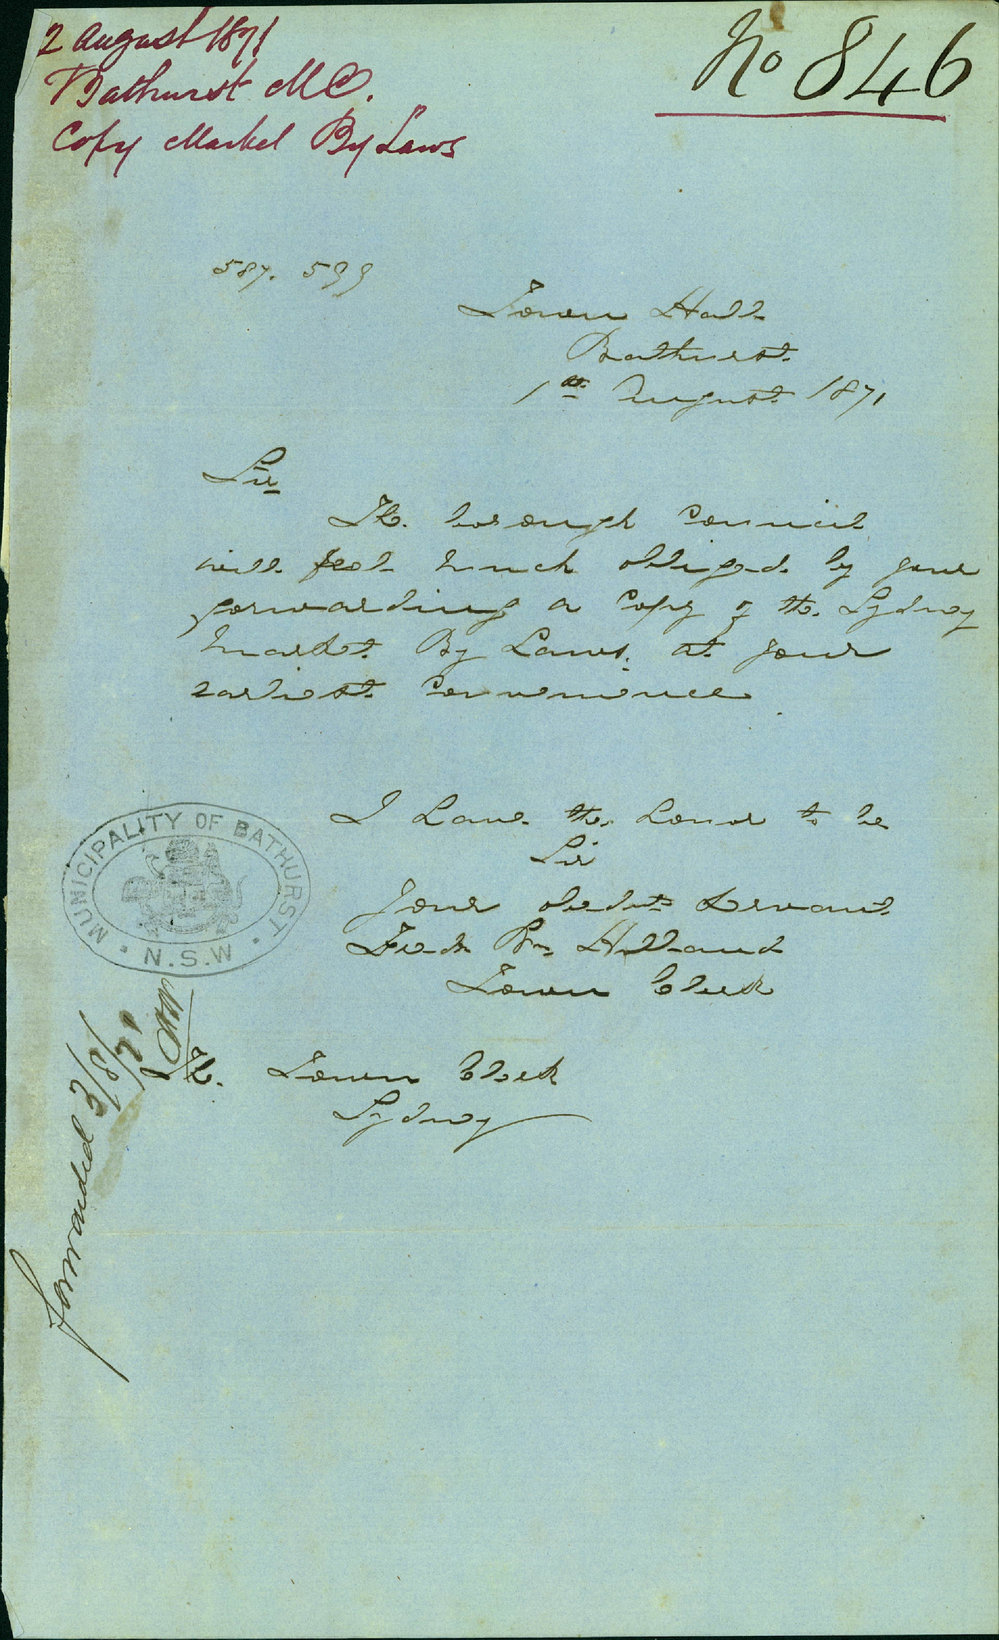 2 August 1871
Bathurst M C.
Copy Market By Laws
No 846
587. 599
Town Hall
Bathurst
1st August 1871
Sir
The borough Council
will feel much obliged by your
forwarding a Copy of the Sydney
Market By Laws, at your
earliest Convenience
I have the honor to be
Sir
Your obedt Servant
Fredk Holland
Town Clerk
MUNICIPALITY OF BATHURST
N.S.W
The Town Clerk
Sydney
forwarded 3/8/71